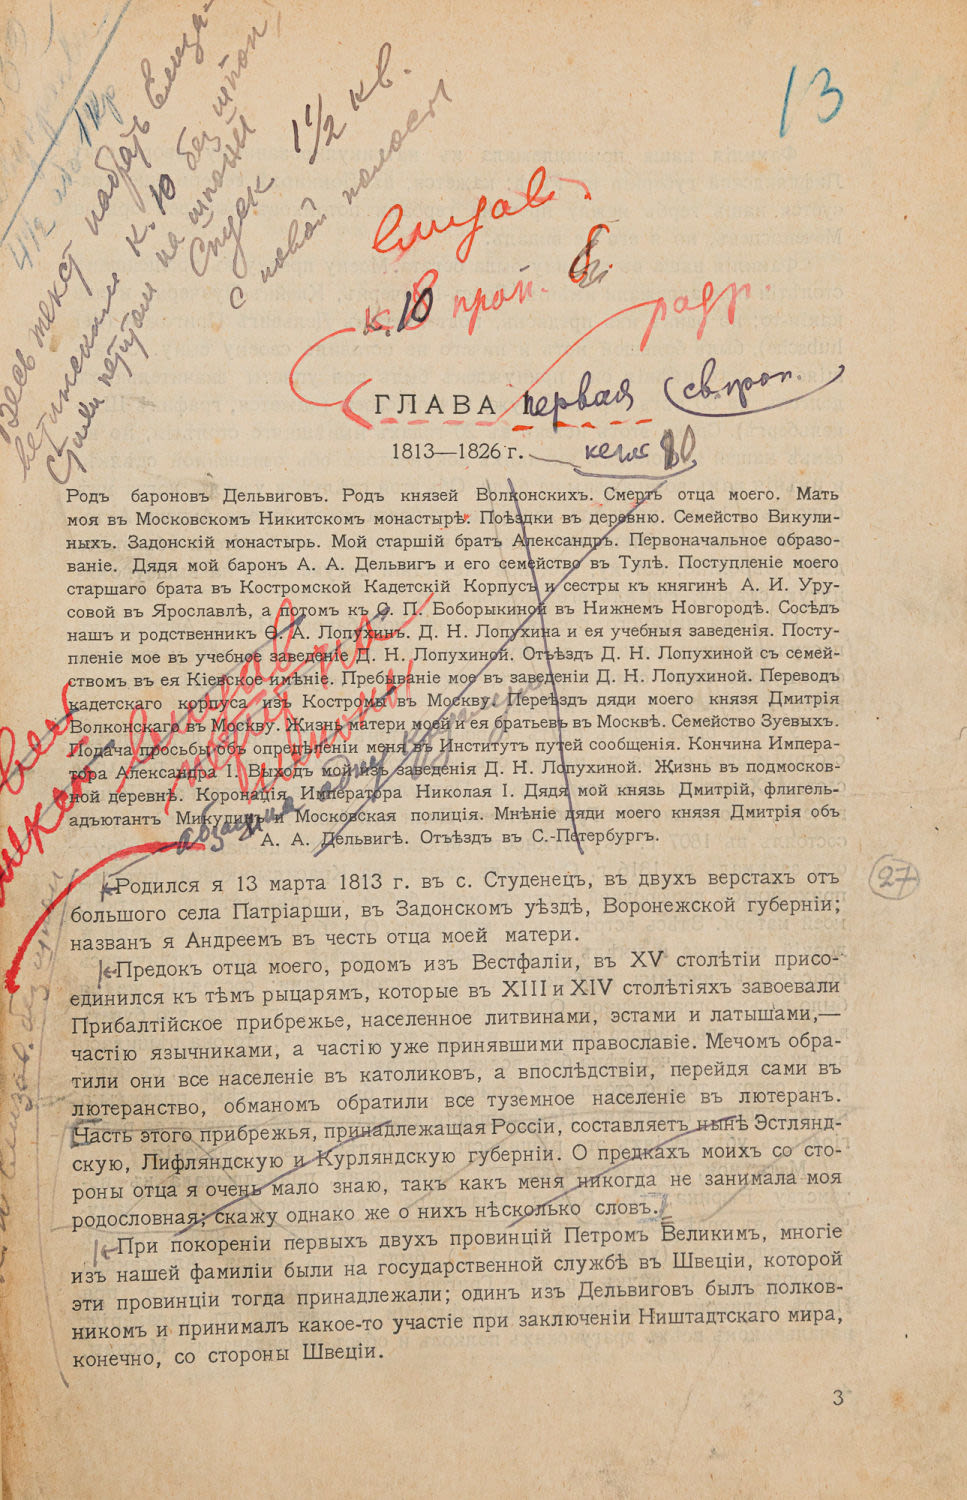 13
Весь текст набрать Елиза-
ветинским к. 10 без шпон,
Стихи петитом на шпоны
Спуск 1 1/2 кв.
с новой полосы
Елизав.
к. 10 проп. б.
разр.
ГЛАВА первая (св. проп.
1813—1826 г. кегль 10
Родъ бароновъ Дельвиговъ. Родъ князей Волконскихъ. Смерть отца моего. Мать
моя въ Московскомъ Никитскомъ монастырѣ. Поѣздки въ деревню. Семейство Викули-
ныхъ. Задонскій монастырь. Мой старшій братъ Александръ. Первоначальное образо-
ваніе. Дядя мой баронъ А. А. Дельвигъ и его семейство въ Тулѣ. Поступленіе моего
старшаго брата въ Костромской Кадетскій Корпусъ и сестры къ княгинѣ А. И. Уру-
совой въ Ярославлѣ, а потомъ къ Ѳ. П. Боборыкиной въ Нижнемъ Новгородѣ. Сосѣдъ
нашъ и родственникъ Ѳ. А. Лопухинъ. Д. Н. Лопухина и ея учебныя заведенія. Посту-
пленіе мое въ учебное заведеніе Д. Н. Лопухиной. Отъѣздъ Д. Н. Лопухиной съ семей-
ствомъ въ ея Кіевское имѣніе. Пребываніе мое въ заведеніи Д. Н. Лопухиной. Переводъ
кадетскаго корпуса изъ Костромы въ Москву. Переѣздъ дяди моего князя Дмитрія
Волконскаго въ Москву. Жизнь матери моей и ея братьевъ въ Москвѣ. Семейство Зуевыхъ.
Подача просьбы объ опредѣленіи меня въ Институтъ путей сообщенія. Кончина Импера-
тора Александра I. Выходъ мой изъ заведенія Д. Н. Лопухиной. Жизнь въ подмосков-
ной деревнѣ. Коронація Императора Николая I. Дядя мой князь Дмитрій, флигель-
адъютантъ Микулинъ и Московская полиція. Мнѣніе дяди моего князя Дмитрія объ
А. А. Дельвигѣ. Отъѣздъ въ С.-Петербургъ.
Родился я 13 марта 1813 г. въ с. Студенецъ, въ двухъ верстахъ отъ
большого села Патріарши, въ Задонскомъ уѣздѣ, Воронежской губерніи;
названъ я Андреемъ въ честь отца моей матери.
27
Предокъ отца моего, родомъ изъ Вестфаліи, въ XV столѣтіи присо-
единился къ тѣмъ рыцарямъ, которые въ XIII и XIV столѣтіяхъ завоевали
Прибалтійское прибрежье, населенное литвинами, эстами и латышами,—
частію язычниками, а частію уже принявшими православіе. Мечомъ обра-
тили они все населеніе въ католиковъ, а впослѣдствіи, перейдя сами въ
лютеранство, обманомъ обратили все туземное населеніе въ лютеранъ.
Часть этого прибрежья, принадлежащая Россіи, составляетъ нынѣ Эстлянд-
скую, Лифляндскую и Курляндскую губерніи. О предкахъ моихъ со сто-
роны отца я очень мало знаю, такъ какъ меня никогда не занимала моя
родословная; скажу однако же о нихъ нѣсколько словъ.
При покореніи первыхъ двухъ провинцій Петромъ Великимъ, многіе
изъ нашей фамиліи были на государственной службѣ въ Швеціи, которой
эти провинціи тогда принадлежали; одинъ изъ Дельвиговъ былъ полков-
никомъ и принималъ какое-то участіе при заключеніи Ништадтскаго мира,
конечно, со стороны Швеціи.
3